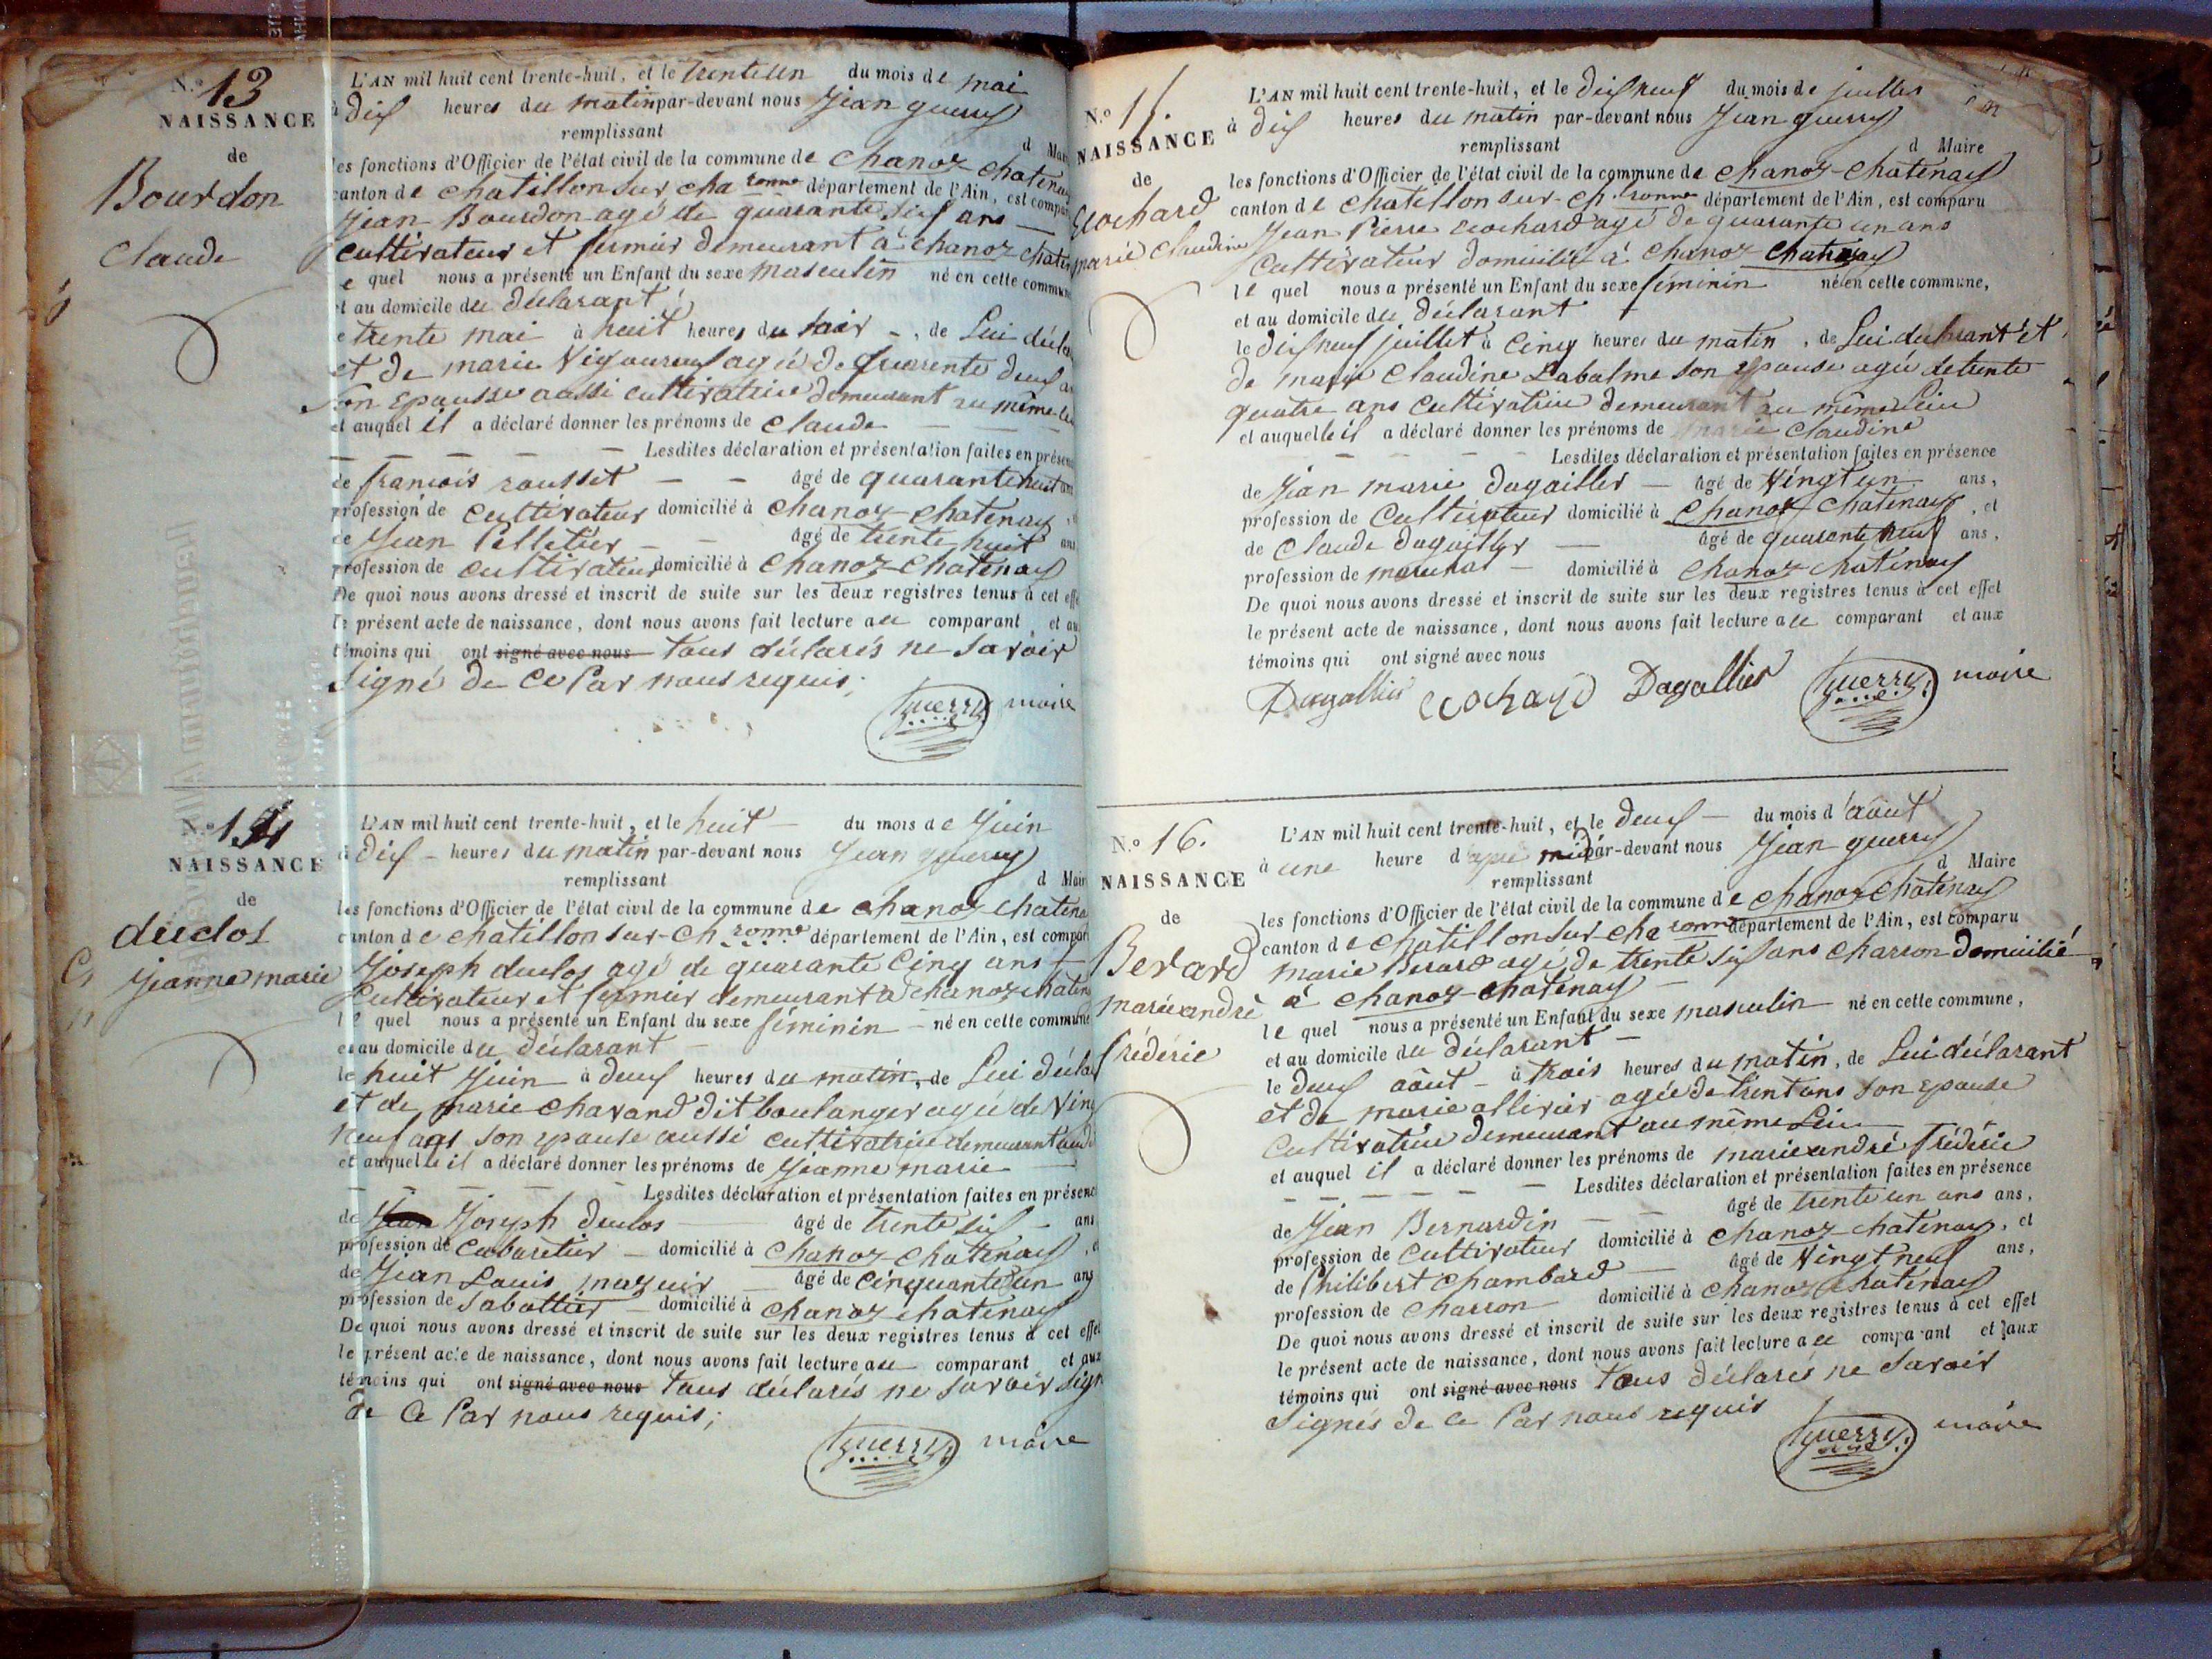 N.o 13
NAISSANCE
de
Bourdon
Claude
L'AN mil huit cent trente-huit, et le trente un du mois de mai
à dix heures du matin par-devant nous Jean guerry
remplissant
d Mai
les fonctions d'Officier de l'état civil de la commune de chanoz chatenay
canton de chatillon sur cha ronne département de l'Ain, est compar
Jean Bourdon agé de quarante six ans
cultivateur et fermier demeurant à chanoz chaten
le quel nous a présenté un Enfant du sexe masculin né en cette commune
et au domicile du déclarant
le trente mai à huit heures du soir, de Lui décla
et de marie Vigoureux agée de quarente deux a
son epousse aussi cultivatrice demeurant au même lieu
et auquel il a déclaré donner les prénoms de claude
Lesdites déclaration et présentation faites en présen
de francois rousset âgé de quarante huit ans
profession de cultivateur domicilié à chanoz chatenay
de Jean Pelletier âgé de trente huit ans
profession de cultivateur domicilié à chanoz-chatenay
De quoi nous avons dressé et inscrit de suite sur les deux registres tenus à cet effe
le présent acte de naissance, dont nous avons fait lecture au comparant et au
témoins qui ont signé avec nous tous déclarés ne savoir
signé de ce Par nous requis;
guerry maire
N.o 14
NAISSANCE
de
duclos
Jeanne marie
L'AN mil huit cent trente-huit, et le huit du mois de Juin
à dix heures du matin par-devant nous Jean guerry
remplissant
d Mair
les fonctions d'Officier de l'état civil de la commune de chanoz chatena
canton de chatillon sur-ch ronne département de l'Ain, est compar
Joseph duclos agé de quarante Cinq ans
Cultivateur et fermier demeurant à chanoz chaten
le quel nous a présenté un Enfant du sexe féminin né en cette commune
et au domicile du déclarant
le huit Juin à deux heures du matin, de Lui décla
et de marie chavand dit boulanger agée de Vin
neuf ans son epouse aussi cultivatrice demeurant aud
et auquelle il a déclaré donner les prénoms de Jeanne marie
Lesdites déclaration et présentation faites en présenc
de Jean Joseph duclos âgé de trente six ans
profession de cabaretier domicilié à chanoz chatenay
de Jean Louis mazuir âgé de cinquante un ans
profession de Sabottier domicilié à chanoz chatenay
De quoi nous avons dressé et inscrit de suite sur les deux registres tenus à cet effet
le présent acte de naissance, dont nous avons fait lecture au comparant et aux
témoins qui ont signé avec nous tous déclarés ne savoir sign
de Ce Par nous requis;
guerry maire
N.o 15.
NAISSANCE
de
Ecochard
marie claudine
L'AN mil huit cent trente-huit, et le dix neuf du mois de juillet
à dix heures du matin par-devant nous Jean guerry
remplissant
d Maire
les fonctions d'Officier de l'état civil de la commune de chanoz-chatenay
canton de chatillon sur-ch ronne département de l'Ain, est comparu
Jean Pierre ecochard agé de quarante un ans
Cultivateur domicilié à chanoz chatenay
le quel nous a présenté un Enfant du sexe féminin né en cette commune,
et au domicile du déclarant
le dix neuf juillet à Cinq heures du matin, de Lui declarant et
de marie Claudine Labalme son epouse agée de trente
quatre ans cultivatrice demeurant au même Lieu
et auquelle il a déclaré donner les prénoms de marie claudine
Lesdites déclaration et présentation faites en présence
de Jean marie dagallier âgé de Vingt un ans,
profession de Cultivateur domicilié à chanoz chatenay, et
de Claude dagallier âgé de quarante neuf ans,
profession de marechal domicilié à chanoz chatenay
De quoi nous avons dressé et inscrit de suite sur les deux registres tenus à cet effet
le présent acte de naissance, dont nous avons fait lecture au comparant et aux
témoins qui ont signé avec nous
Dagallier ecochard Dagallier guerry maire
N.o 16.
NAISSANCE
de
Berard
marie andré
fréderic
L'AN mil huit cent trente-huit, et le deux du mois d'août
à une heure d'apre midi par-devant nous Jean guerry
remplissant
d Maire
les fonctions d'Officier de l'état civil de la commune de chanoz chatenay
canton de chatillon sur cha ronne département de l'Ain, est comparu
marie Berard agé de trente six ans charron domicilié
à chanoz-chatenay
le quel nous a présenté un Enfant du sexe masculin né en cette commune,
et au domicile du déclarant
le deux août à trois heures du matin, de Lui déclarant
et de marie ollivier agée de trent ans son epouse
Cultivatrice demeurant au même Lieu
et auquel il a déclaré donner les prénoms de marie andré fréderic
Lesdites déclaration et présentation faites en présence
de Jean Bernardin âgé de trente un ans ans,
profession de cultivateur domicilié à chanoz-chatenay, et
de Philibert chambard âgé de Vingt neuf ans,
profession de charron domicilié à chanoz chatenay
De quoi nous avons dressé et inscrit de suite sur les deux registres tenus à cet effet
le présent acte de naissance, dont nous avons fait lecture au comparant et aux
témoins qui ont signé avec nous tous déclarés ne savoir
Signés de ce Par nous requis
guerry maire